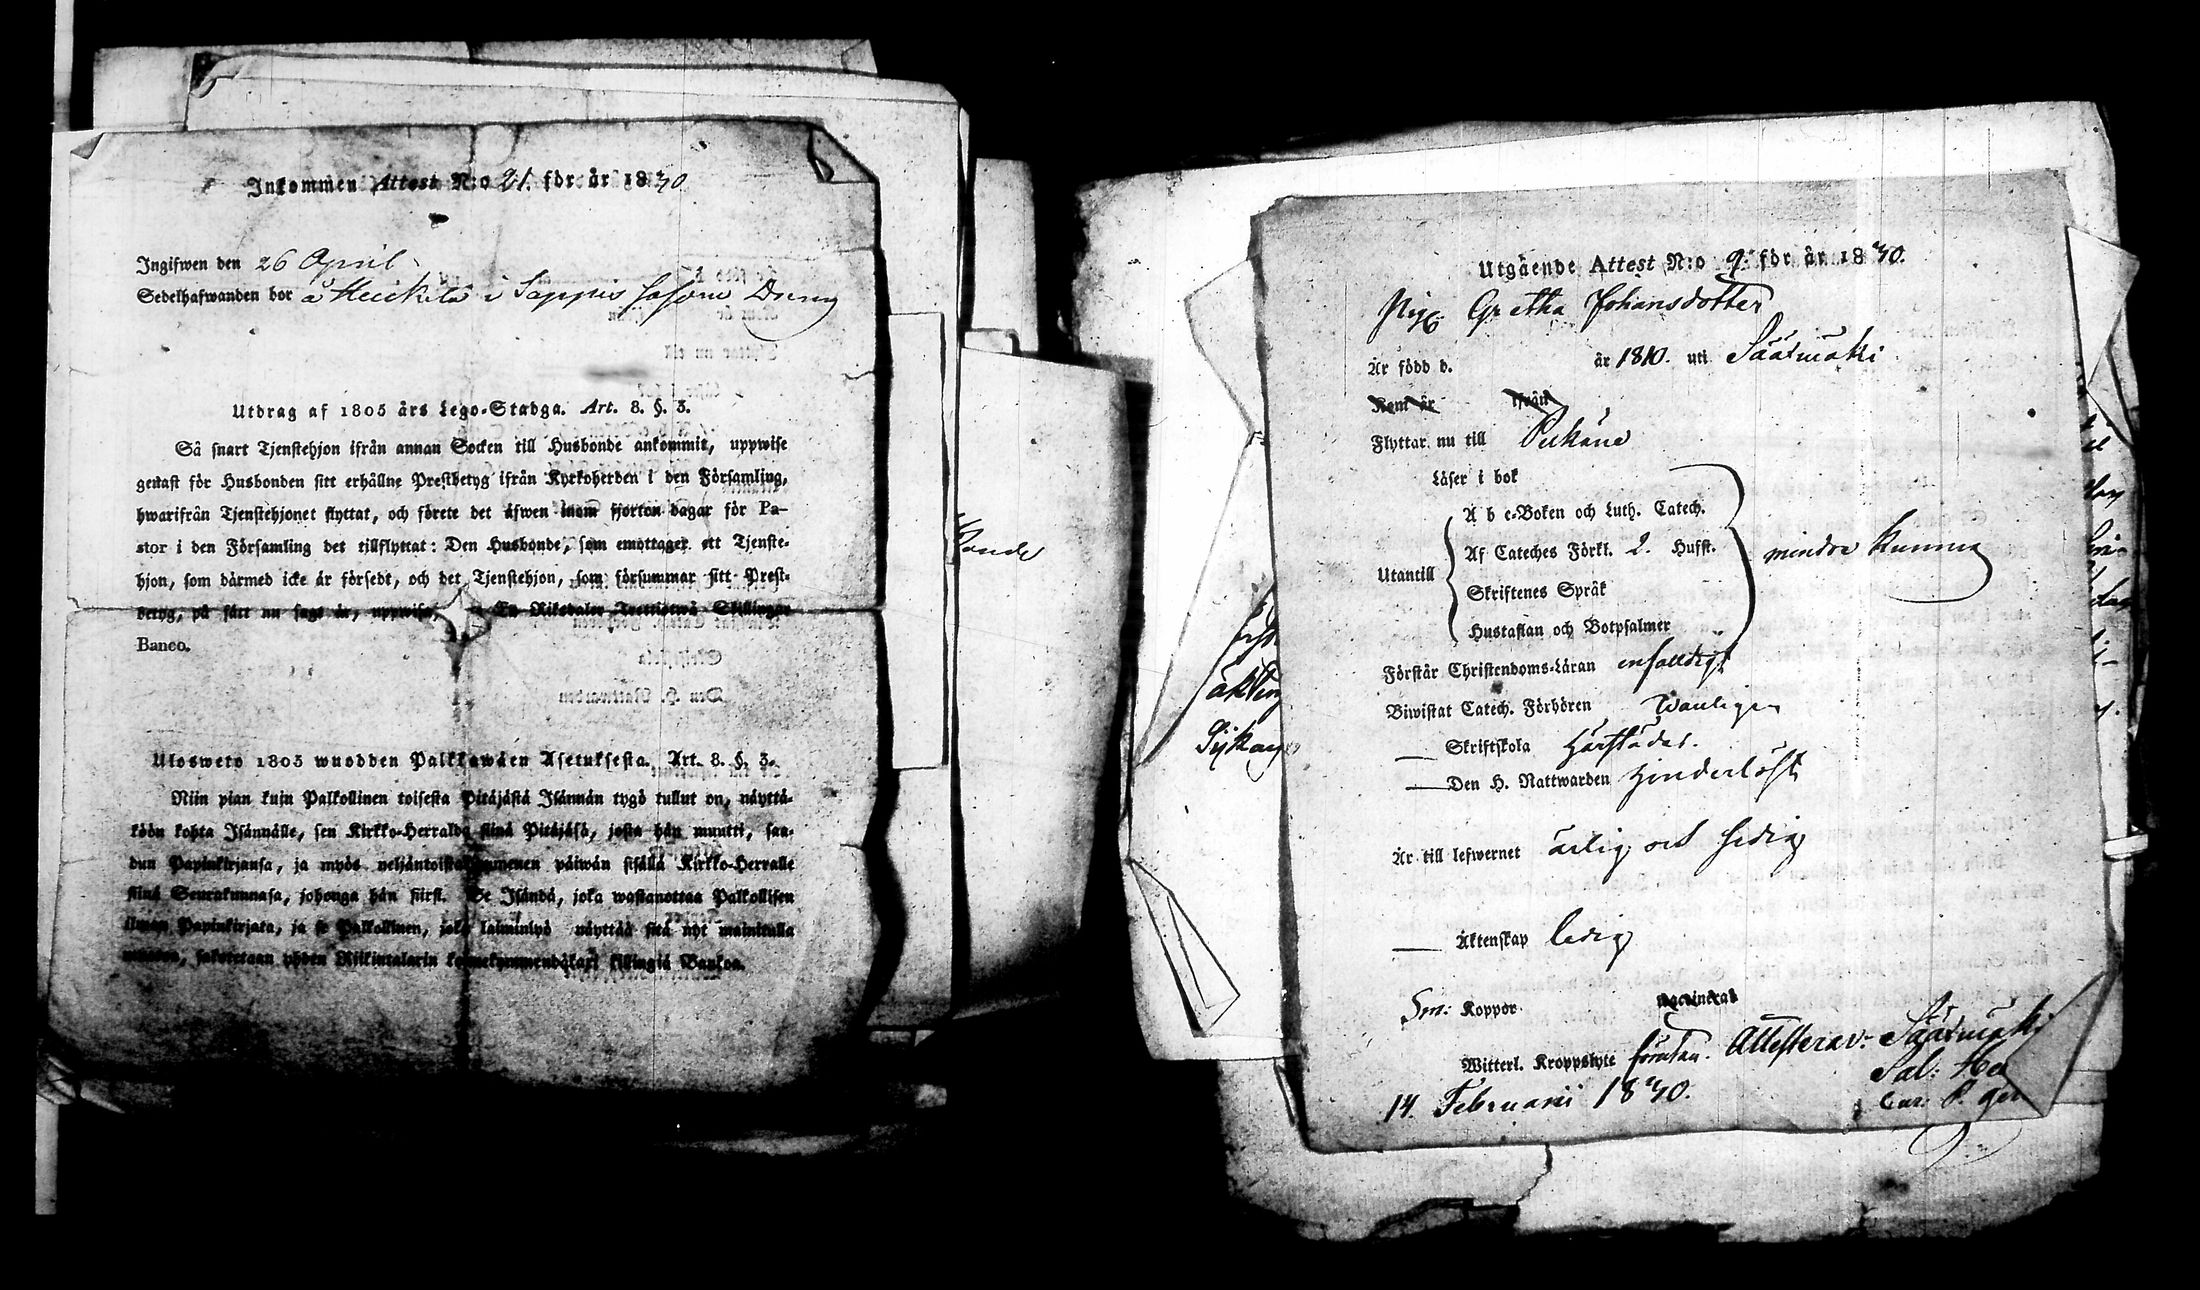 Inkommen Attest N:o 21. för år 1830
Ingifwen den 26 April
Sedelhafwanden bor å Heickilä i Sappis såsom Dreng
Utdrag af 1805 års Lego-Stadga. Art. 8. §. 3.
Så snart Tjenstehjon ifrån annan Socken till Husbonde ankommit, uppwise
genast för Husbonden sitt erhållne Prestbetyg ifrån Kyrkoherden i den Församling,
hwarifrån Tjenstehjonet flyttat, och förete det äfwen inom fjorton dagar för Pa-
stor i den Församling det tillflyttat: Den Husbonde, som emottager ett Tjenste-
hjon, som dårmed icke är försedt, och det Tjenstehjon, som försummar sitt Prest-
betyg, på sätt nu sagt är, uppwisa, En Riksdaler Trettiotwå Skillingar
Banco.
Uloswetо 1805 wuodden Palkkawåen Asetuksesta. Art. 8. §. 3.
Niin pian kuin Palkollinen toisesta Pitäjästä Isännän tygö tullut on, näyttä-
köön kohta Isännälle, sen Kirkko-Herralda siinä Pitäjäsä, josta hän muutti, saa-
dun Papinkirjansa, ja myös neljäntoistakymmenen päiwän sisällä Kirkko-Herralle
siinä Seurakunnasa, johonga hän siirsi. Se Isändä, joka wastanottaa Palkollisen
ilman Papinkirjata, ja se Palkollinen, joka laiminlyö näyttää sitä nyt mainitulla
muodon, sakotetaan yhden Riikintalarin kolmekymmendäkaxi killingiä Bankoa.
Bonde
äkten
Utgående Attest N:o 9. för år 1830.
Pig. Gretha Johansdotter
Är född d. år 1810. uti Säärmäki
Kom år ifrån
Flyttar nu till Pelkäne
Läser i bok
A b c-Boken och Luth. Catech.
Af Cateches Förkl. 2. Hufst. mindre kunnig
Utantill
Skriftenes Språk
Hustaflan och Botpsalmer
Förstår Christendoms-Läran enfalldigt
Biwistat Catech. Förhören Wanligen
— Skriftskola Härstädes.
— Den H. Nattwarden Hinderlöst
Är till lefwernet ärlig och sedig
— Äktenskap ledig
Sm: Koppor vaccinerad
Witterl. Kroppslyte förutan. Attesterar: Säärmäki
14 Februarii 1830.